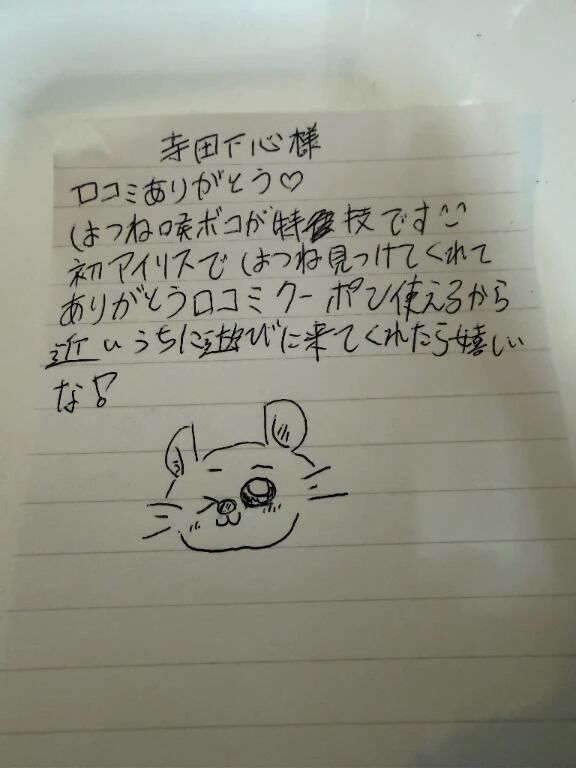 寺田下心様
口コミありがとう♡
はつね喉ボコが特技です^^
初アイリスではつね見つけてくれて
ありがとう口コミクーポン使えるから
近いうちに遊びに来てくれたら嬉しい
な♪